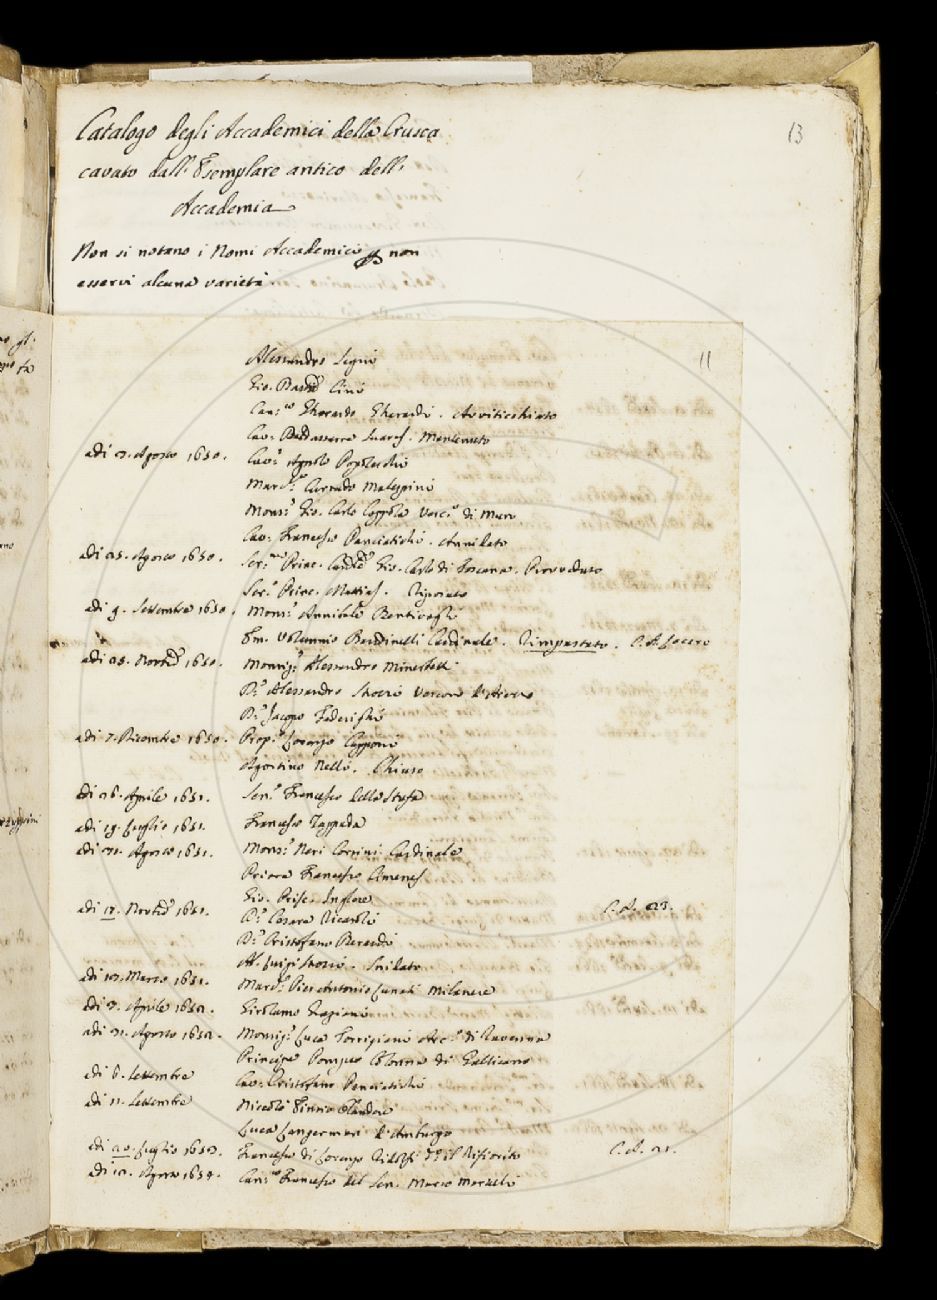 13
Catalogo degli Accademici della Crusca
cavato dall' Esemplare antico dell'
Accademia
Non si notano i Nomi Accademici p non
esservi alcuna varietà.
11
Alessandro Segni
Gio. Cini
Gherardo Gherardi.
Cav: Baldassarre Suares.
adi Agosto 1650. Cav:
March: Corrado Malespini
Mons: Gio. Carlo Coppola Vesc: di Muro
Cav: Francesco Panciatichi. Annilato
adi 25. Agosto 1650. Ser: Princ. Gio. Carlo di Toscana. Provveduto
Ser: Princ. Mattias.
adi 9. Settembre 1650. Mons: Annibale Bentivogli
Em. Volunnio Bandinelli Cardinale. Rimpastato. C. A.
adi 1650. Monsig: Alessandro Minerbetti
D: Alessandro Vescovo d'Arezzo
D: Jacopo Federighi
adi 7. Dicembre 1650. Prop: Lorenzo Capponi
Agostino Nelli. Chiuso
adi 26. Aprile 1651. Sen: Francesco della Stufa
adi 19. Luglio 1651. Francesco
adi Agosto 1651. Mons: Neri Corsini Cardinale
Priore Francesco Ximenes
Gio.
adi 1651. D: Cesare Ricasoli C. A. 23.
D: Cristofano Berardi
Ab. Luigi Strozzi.
adi Marzo 1651. March: Pier Antonio Lunati Milanese
adi Aprile 1652. Girolamo Graziani
adi 31. Agosto 1652. Monsig: Luca Torrigiani Arc: di Ravenna
Principe Pompeo Colonna di Gallicano
adi 6. Settembre Cav: Cristofano Panciatichi
adi 11. Settembre Niccolò Einsio Olandese
Luca Langermann d'Amburgo
adi 20. Luglio 1653. Francesco di Lorenzo Ridolfi d: il Rifiorito C. A. 21.
adi Agosto 1654. Can: Francesco del Sen. Marco Martelli